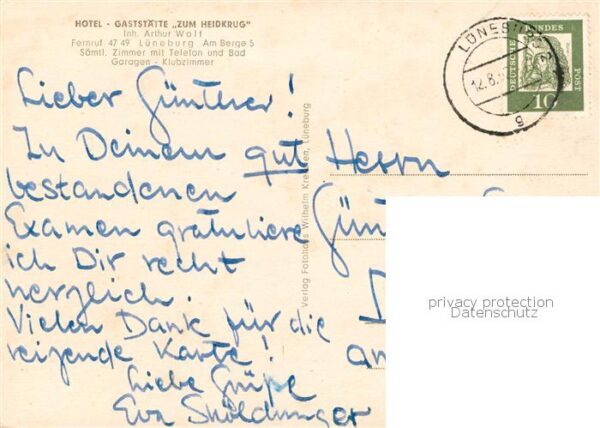 HOTEL - GASTSTÄTTE „ZUM HEIDKRUG"
Inh. Arthur Wolf
Fernruf 47 49 Lüneburg Am Berge 5
Sämtl. Zimmer mit Telefon und Bad
Garagen - Klubzimmer
Lieber Günther!
Zu Deinem gut
bestandenen
Examen gratuliere
ich Dir recht
herzlich.
Vielen Dank für die
reizende Karte!
Liebe Grüße
Eva
Verlag Fotohaus Wilhelm Lüneburg
Herrn
LÜNEBURG 2
12.8.
g
DEUTSCHE BUNDES POST
10
privacy protection
Datenschutz